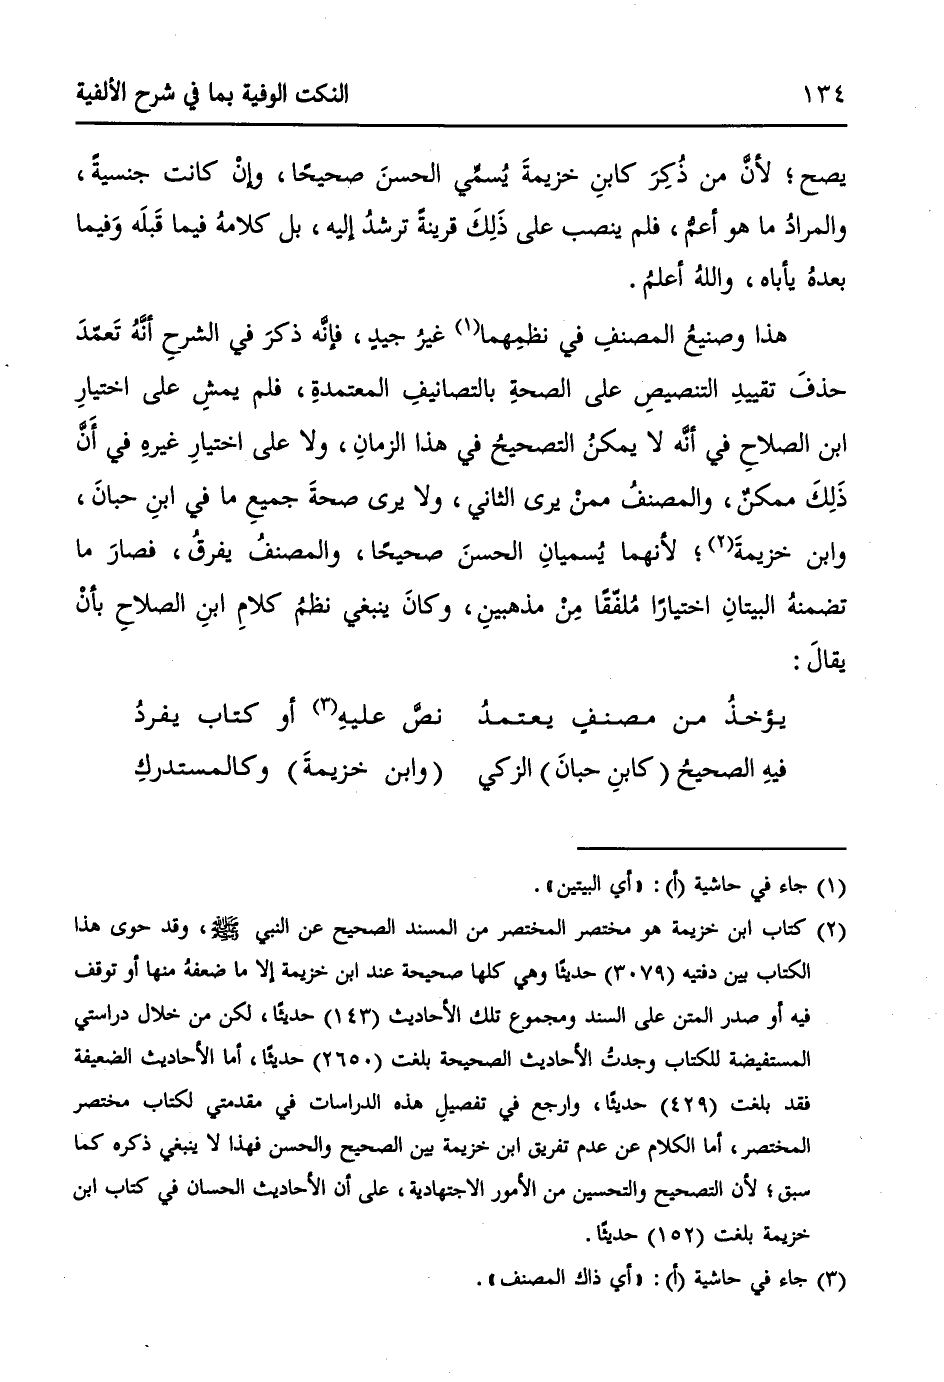 ١٣٤ النكت الوفية بما في شرح الألفية
يصح؛ لأنَّ من ذُكِرَ كابنِ خزيمةَ يُسمِّي الحسنَ صحيحًا، وإنْ كانت جنسيةً،
والمرادُ ما هو أعمُّ، فلم ينصب على ذَلِكَ قرينةً ترشدُ إليه، بل كلامهُ فيما قَبلَه وَفيما
بعدهُ يأباه، واللهُ أعلمُ.
هذا وصنيعُ المصنفِ في نظمِهما(١) غيرُ جيدٍ، فإنَّه ذكرَ في الشرحِ أنَّهُ تَعمّدَ
حذفَ تقييدِ التنصيصِ على الصحةِ بالتصانيفِ المعتمدةِ، فلم يمشِ على اختيارِ
ابن الصلاحِ في أنَّه لا يمكنُ التصحيحُ في هذا الزمانِ، ولا على اختيارِ غيرهِ في أَنَّ
ذَلِكَ ممكنٌ، والمصنفُ ممنْ يرى الثاني، ولا يرى صحةَ جميعِ ما في ابنِ حبانَ،
وابن خزيمةَ(٢)؛ لأنهما يُسميانِ الحسنَ صحيحًا، والمصنفُ يفرقُ، فصارَ ما
تضمنهُ البيتانِ اختيارًا مُلفّقًا مِنْ مذهبينِ، وكانَ ينبغي نظمُ كلامِ ابنِ الصلاحِ بأنْ
يقالَ:
يؤخذُ من مصنفٍ يعتمدُ نصَّ عليهِ(٣) أو كتاب يفردُ
فيهِ الصحيحُ (كابنِ حبانَ) الزكي (وابن خزيمةَ) وكالمستدركِ
(١) جاء في حاشية (أ): «أي البيتين».
(٢) كتاب ابن خزيمة هو مختصر المختصر من المسند الصحيح عن النبي ﷺ، وقد حوى هذا
الكتاب بين دفتيه (٣٠٧٩) حديثًا وهي كلها صحيحة عند ابن خزيمة إلا ما ضعفهُ منها أو توقف
فيه أو صدر المتن على السند ومجموع تلك الأحاديث (١٤٣) حديثًا، لكن من خلال دراستي
المستفيضة للكتاب وجدتُ الأحاديث الصحيحة بلغت (٢٦٥٠) حديثًا، أما الأحاديث الضعيفة
فقد بلغت (٤٢٩) حديثًا، وارجع في تفصيلِ هذه الدراسات في مقدمتي لكتاب مختصر
المختصر، أما الكلام عن عدم تفريق ابن خزيمة بين الصحيح والحسن فهذا لا ينبغي ذكره كما
سبق؛ لأن التصحيح والتحسين من الأمور الاجتهادية، على أن الأحاديث الحسان في كتاب ابن
خزيمة بلغت (١٥٢) حديثًا.
(٣) جاء في حاشية (أ): «أي ذاك المصنف».